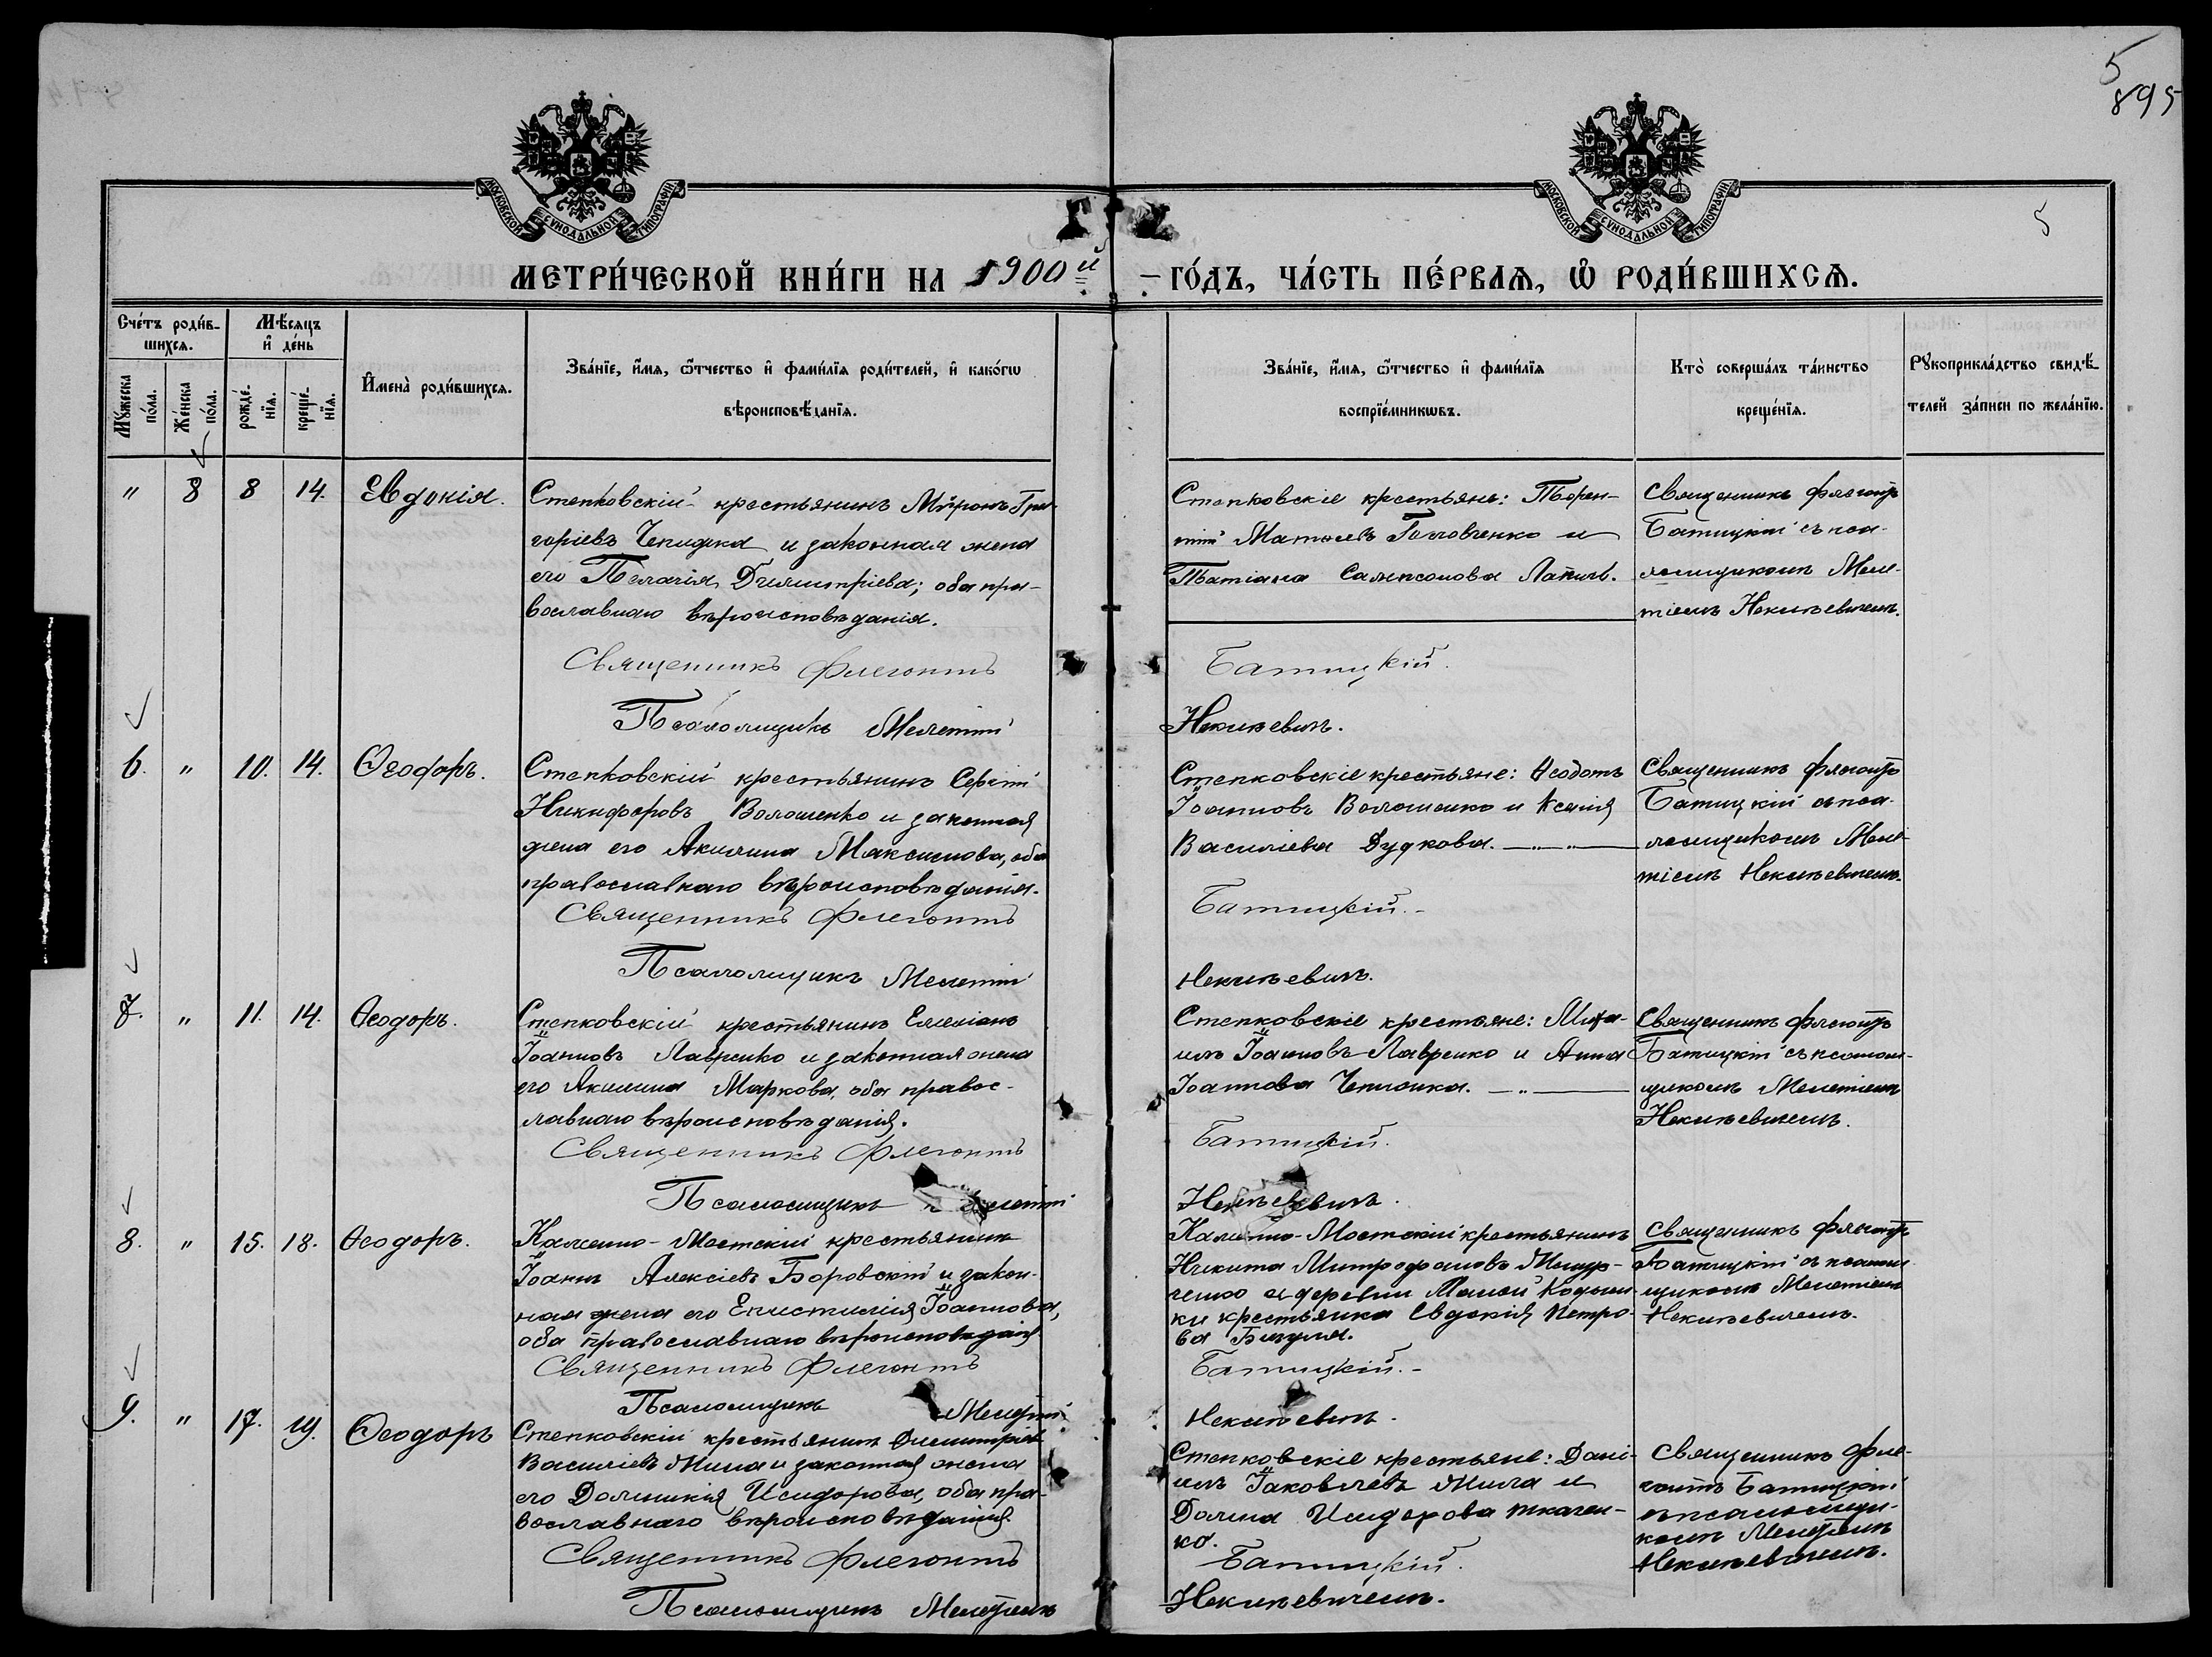 5
895
МОСКОВСКОЙ СѴНОДАЛЬНОЙ ТИПОГРАФІИ
МОСКОВСКОЙ СѴНОДАЛЬНОЙ ТИПОГРАФІИ
5
МЕТРИ́ЧЕСКОЙ КНИ́ГИ НА 1900й – ГО́ДЪ, ЧА́СТЬ ПЕ́РВАѦ, Ѽ РОДИ́ВШИХСѦ.
Сче́тъ роди́в-
шихсѧ.
Мѣ́сѧцъ
и҆ де́нь
Мꙋ́жеска
по́ла.
Же́нска
по́ла.
рожде́-
нїѧ.
креще́-
нїѧ.
И҆мена̀ роди́вшихсѧ.
Зва́нїе, и҆́мѧ, ѻ҆́тчество и҆ фами́лїѧ роди́телей, и҆ како́гѡ
вѣроисповѣ́данїѧ.
Зва́нїе, и҆́мѧ, ѻ҆́тчество и҆ фами́лїѧ
воспрїе́мникѡвъ.
Кто̀ соверша́лъ та́инство
креще́нїѧ.
Рꙋкоприкла́дство свидѣ́-
телей за́писи по жела́нїю.
" 8 8 14. Евдокія.
Степковскій крестьянинъ Миронъ Гри-
горіевъ Чепижка и законная жена
его Пелагія Димитріева; оба пра-
вославнаго вѣроисповѣданія.
Священникъ Флегонтъ
Псаломщикъ Мелетій
Степковскіе крестьяне: Терен-
тій Матѳеевъ Головченко и
Татіана Сампсонова Лапичъ.
Батицкій.
Некипевичъ.
Священникъ Флегонтъ
Батицкій съ пса-
ломщикомъ Меле-
тіемъ Некипевичемъ.
6. " 10. 14. Ѳеодоръ.
Степковскій крестьянинъ Сергій
Никифоровъ Волошенко и законная
жена его Акилина Максимова, оба
православнаго вѣроисповѣданія.
Священникъ Флегонтъ
Псаломщикъ Мелетій
Степковскіе крестьяне: Ѳеодотъ
Іоанновъ Волошенко и Ксенія
Василіева Дудкова.
Батицкій.-
Некипевичъ.
Священникъ Флегонтъ
Батицкій съ пса-
ломщикомъ Меле-
тіемъ Некипевичемъ.
7. " 11. 14. Ѳеодоръ.
Степковскій крестьянинъ Емеліанъ
Іоанновъ Лавренко и законная жена
его Акилина Маркова, оба правос-
лавнаго вѣроисповѣданія.
Священникъ Флегонтъ
Псаломщикъ Мелетій
Степковскіе крестьяне: Миха-
илъ Іоанновъ Лавренко и Анна
Іоаннова
Батицкій.
Некипевичъ.
Священникъ Флегонтъ
Батицкій съ псалом-
щикомъ Мелетіемъ
Некипевичемъ.
8. " 15. 18. Ѳеодоръ.
Каменно-Мостскій крестьянинъ
Іоаннъ Алексіевъ Боровскій и закон-
ная жена его Епистимія Іоаннова,
оба православнаго вѣроисповѣданія
Священникъ Флегонтъ
Псаломщикъ Мелетій
Каменно-Мостскій крестьянинъ
Никита Митрофановъ
и деревни Малой
ки крестьянка Евдокія Петро-
ва
Батицкій.-
Некипевичъ.
Священникъ Флегонтъ
Батицкій съ псалом-
щикомъ Мелетіемъ
Некипевичемъ.
9. " 17. 19. Ѳеодоръ
Степковскій крестьянинъ Димитрій
Василіевъ Мила и законная жена
его Домникія Исидорова, оба пра-
вославнаго вѣроисповѣданія
Священникъ Флегонтъ
Псаломщикъ Мелетіемъ
Степковскіе крестьяне: Дані-
илъ Іаковлевъ Мила и
Домна Исидорова Ткачен-
ко.
Батицкій.
Некипевичемъ.
Священникъ Фле-
гонтъ Батицкій
съ псаломщи-
комъ Мелетіемъ
Некипевичемъ.